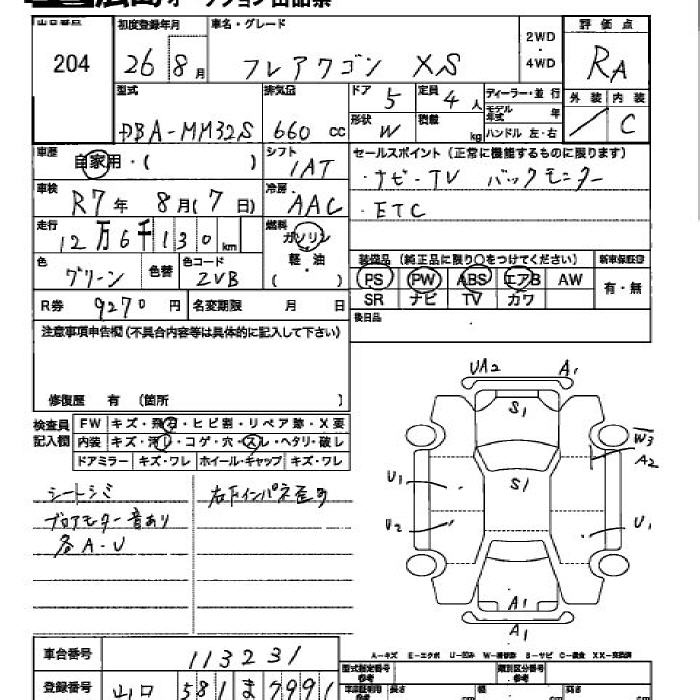 広島オークション出品票
出品番号 204
初度登録年月 26 8月
車名・グレード フレアワゴン XS
2WD・4WD
評価点 RA
外装 / 内装 C
型式 DBA-MM32S
排気量 660 cc
ドア 5 定員 4人
形状 W 積載 kg
ディーラー・並行
モデル年式 年
ハンドル 左・右
車歴 自家用・( )
シフト IAT
セールスポイント(正常に機能するものに限ります)
・ナビ・TV バックモニター
・ETC
車検 R7年 8月(7日)
冷房 AAC
走行 12万6千130km
燃料 ガソリン 軽・油 ( )
色 グリーン 色替 色コード ZVB
装備品(純正品に限り○をつけてください) 新車保証書
PS PW ABS エアB AW 有・無
SR ナビ TV カワ
R券 9270円 名変期限 月 日
後日品
注意事項申告欄(不具合内容等は具体的に記入して下さい)
修復歴 有 (箇所 )
検査員記入欄
FW キズ・飛石・ヒビ割・リペア跡・X要
内装 キズ・汚レ・コゲ・穴・スレ・ヘタリ・破レ
ドアミラー キズ・ワレ ホイール・キャップ キズ・ワレ
シートシミ
ブロアモーター音あり
各A・U
右下インパネ歪み
UA2 A1
S1
W3
A2
U1 S1
U2 U1
A1
A1
A-キズ E-エクボ U-凹み W-補修跡 S-サビ C-腐食 XX-交換済
車台番号 113231
登録番号 山口 581 ま 7991
型式指定番号 参考 類別区分番号 参考
長さ 幅 高さ
cm cm cm